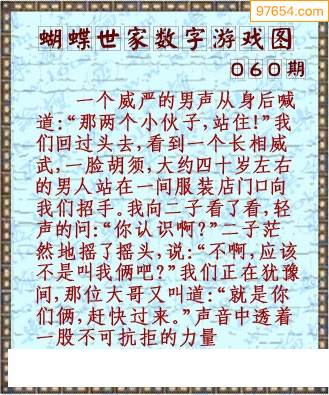 97654.com
蝴蝶世家数字游戏图
060期
一个威严的男声从身后喊
道:“那两个小伙子,站住!”我
们回过头去,看到一个长相威
武,一脸胡须,大约四十岁左右
的男人站在一间服装店门口向
我们招手。我向二子看了看,轻
声的问:“你认识啊?”二子茫
然地摇了摇头,说:“不啊,应该
不是叫我俩吧?”我们正在犹豫
间,那位大哥又叫道:“就是你
们俩,赶快过来。”声音中透着
一股不可抗拒的力量